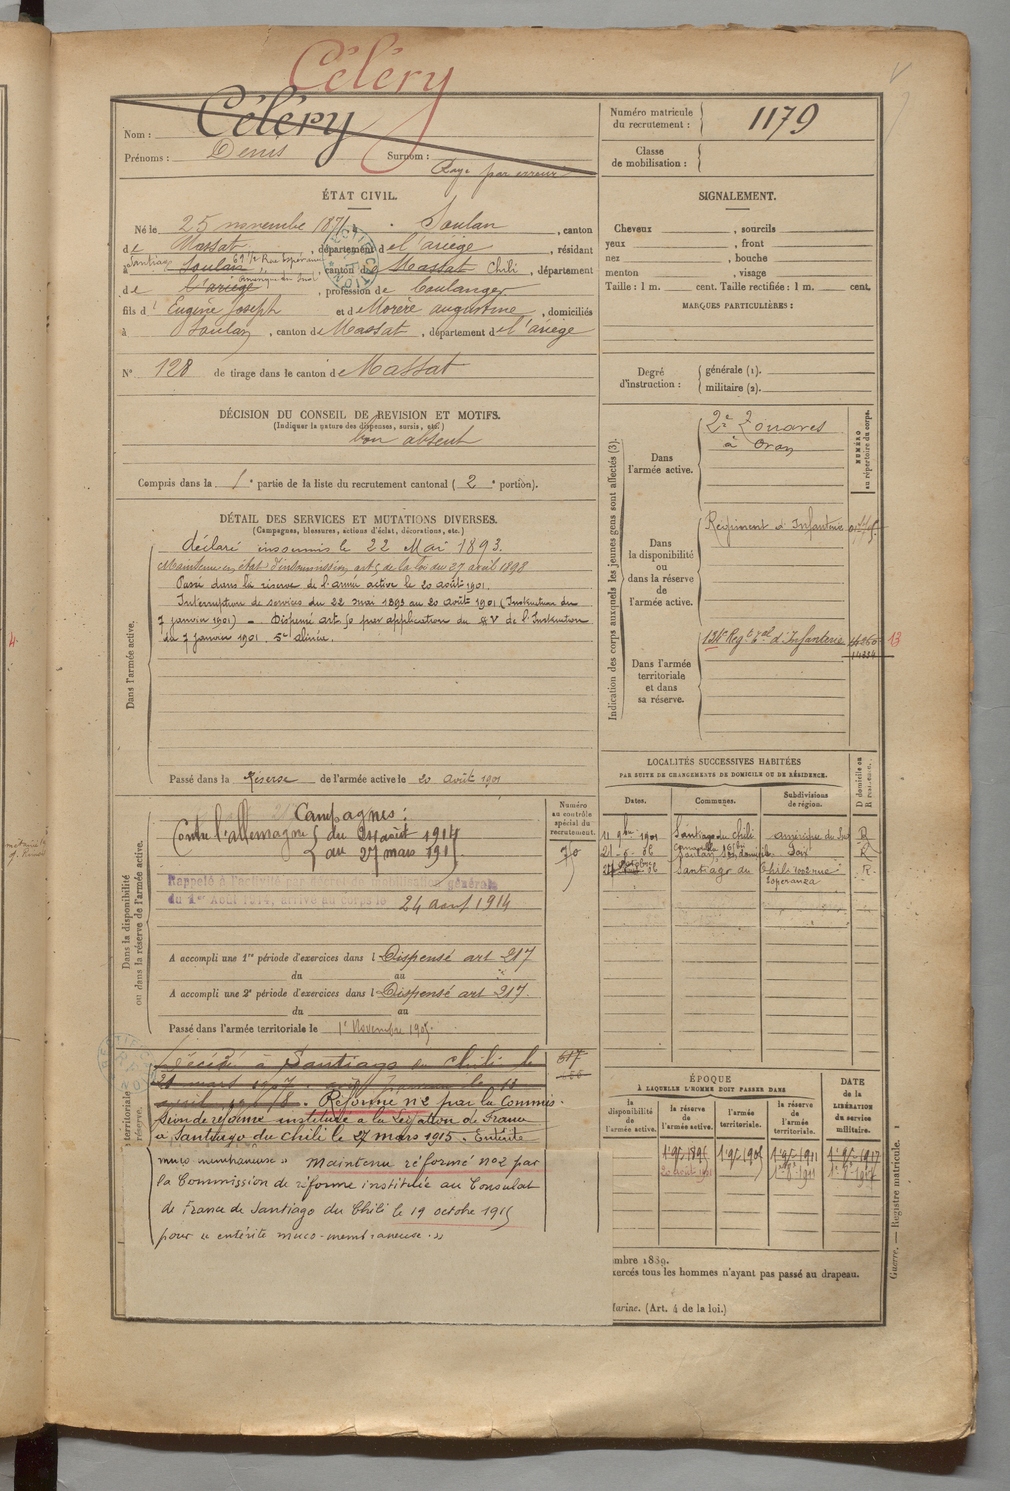 Céléry
Nom : Céléry
Prénoms : Denis Surnom :
Rayé par erreur
Numéro matricule
du recrutement : 1179
Classe
de mobilisation :
ÉTAT CIVIL.
Né le 25 novembre 1871, Soulan, canton
de Massat, département de l'ariège, résidant
à Santiago Soulan, canton de Massat Chili, département
de l'ariège, profession de boulanger
fils d' Eugène Joseph et de Morère augustine, domiciliés
à Soulan, canton de Massat, département de l'ariège
N° 128 de tirage dans le canton de Massat
DÉCISION DU CONSEIL DE REVISION ET MOTIFS.
(Indiquer la nature des dispenses, sursis, etc.)
bon absent
Compris dans la 1e partie de la liste du recrutement cantonal (2e portion).
DÉTAIL DES SERVICES ET MUTATIONS DIVERSES.
(Campagnes, blessures, actions d'éclat, décorations, etc.)
Dans l'armée active.
déclaré insoumis le 22 Mai 1893.
Maintenu en état d'insoumission art 5 de la loi du 27 avril 1898
Passé dans la réserve de l'armée active le 20 août 1901.
Interruption de services du 22 mai 1893 au 20 août 1901 (Instruction du
7 janvier 1901) - Dispensé art 50 par application du § V de l'Instruction
du 7 janvier 1901. 5e alinéa.
Passé dans la Réserve de l'armée active le 20 août 1901
Dans la disponibilité
ou dans la réserve de l'armée active.
Numéro
au contrôle
spécial du
recrutement.
70
Campagnes :
Contre l'allemagne du 24 août 1914
au 27 mars 1915
Rappelé à l'activité par décret de mobilisation générale
du 1er Août 1914, arrivé au corps le 24 aout 1914
A accompli une 1re période d'exercices dans l Dispensé art 217
du au
A accompli une 2e période d'exercices dans l Dispensé art 217.
du au
Passé dans l'armée territoriale le 1r Novembre 1905.
territoriale
réserve.
Décédé à Santiago du chili le
21 mars 1907
617
Réformé n°2 par la Commis-
sion de réforme instituée à la Légation de France
à Santiago du chili le 27 mars 1915. Entérite
muco-membraneuse » Maintenu réformé n°2 par
la Commission de réforme instituée au Consulat
de France de Santiago du Chili le 19 octobre 1915
pour « entérite muco-membraneuse. »
SIGNALEMENT.
Cheveux , sourcils
yeux , front
nez , bouche
menton , visage
Taille : 1 m. cent. Taille rectifiée : 1 m. cent.
MARQUES PARTICULIÈRES :
Degré
d'instruction :
générale (1).
militaire (2).
Indication des corps auxquels les jeunes gens sont affectés (3).
NUMÉRO
au répertoire du corps.
Dans
l'armée active.
2e Zouaves
à Oran
Dans
la disponibilité
ou
dans la réserve
de
l'armée active.
Régiment d'Infanterie
Dans l'armée
territoriale
et dans
sa réserve.
134e Regt Tal d'Infanterie
13
LOCALITÉS SUCCESSIVES HABITÉES
PAR SUITE DE CHANGEMENTS DE DOMICILE OU DE RÉSIDENCE.
Dates. Communes. Subdivisions
de région.
D domicile ou
R résidence.
11 9bre 1901 Santiago du chili amérique du Sud R
21-6-06 Soulan Foix R
Santiago du Chili 1002 rue R
Esperanza
ÉPOQUE
À LAQUELLE L'HOMME DOIT PASSER DANS
DATE
de la
LIBÉRATION
du service
militaire.
la
disponibilité
de
l'armée active.
la réserve
de
l'armée active.
l'armée
territoriale.
la réserve
de
l'armée
territoriale.
1r 9bre 1895 1r 9bre 1905 1r 9bre 1911 1r 9bre 1917
20 août 1901
mbre 1889.
xercés tous les hommes n'ayant pas passé au drapeau.
Marine. (Art. 4 de la loi.)
Guerre. — Registre matricule. 1